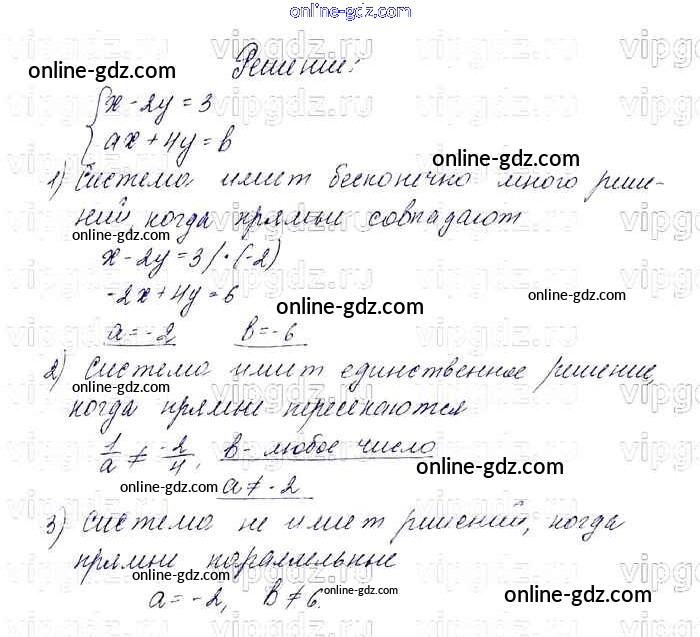 online-gdz.com
Решение:
online-gdz.com
{x - 2y = 3
{ax + 4y = b
online-gdz.com
1) Система имеет бесконечно много реше-
ний когда прямые совпадают
online-gdz.com
x - 2y = 3 / · (-2)
-2x + 4y = 6
online-gdz.com
online-gdz.com
a = -2, b = -6
2) Система имеет единственное решение,
online-gdz.com
когда прямые пересекаются
1/a ≠ -2/4, b - любое число
online-gdz.com
online-gdz.com
a ≠ -2
3) система не имеет решений, когда
прямые параллельные
online-gdz.com
a = -2, b ≠ 6.
online-gdz.com
vipgdz.ru